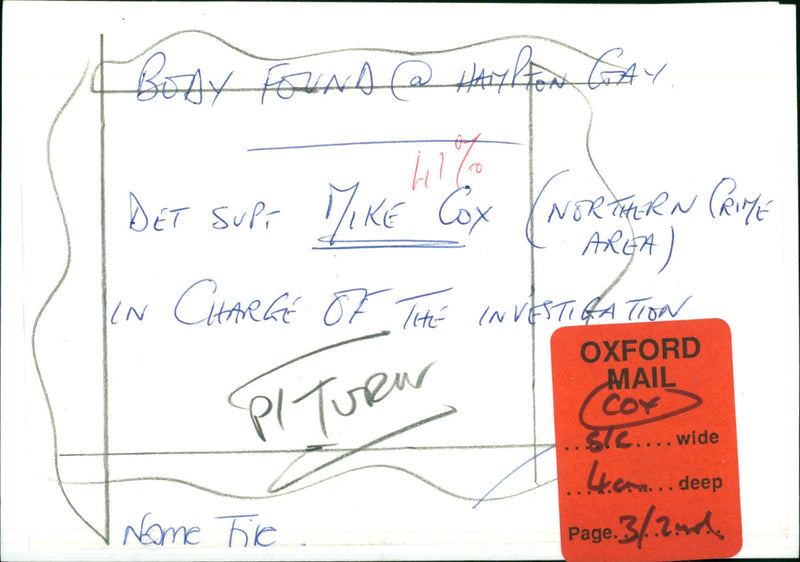 BODY FOUND @ HAMPTON GAY
41%
DET SUPT MIKE COX (NORTHERN CRIME AREA)
IN CHARGE OF THE INVESTIGATION
P/ TURN
Name File.
OXFORD
MAIL
COX
s/c wide
4cm deep
Page. 3/2nd.